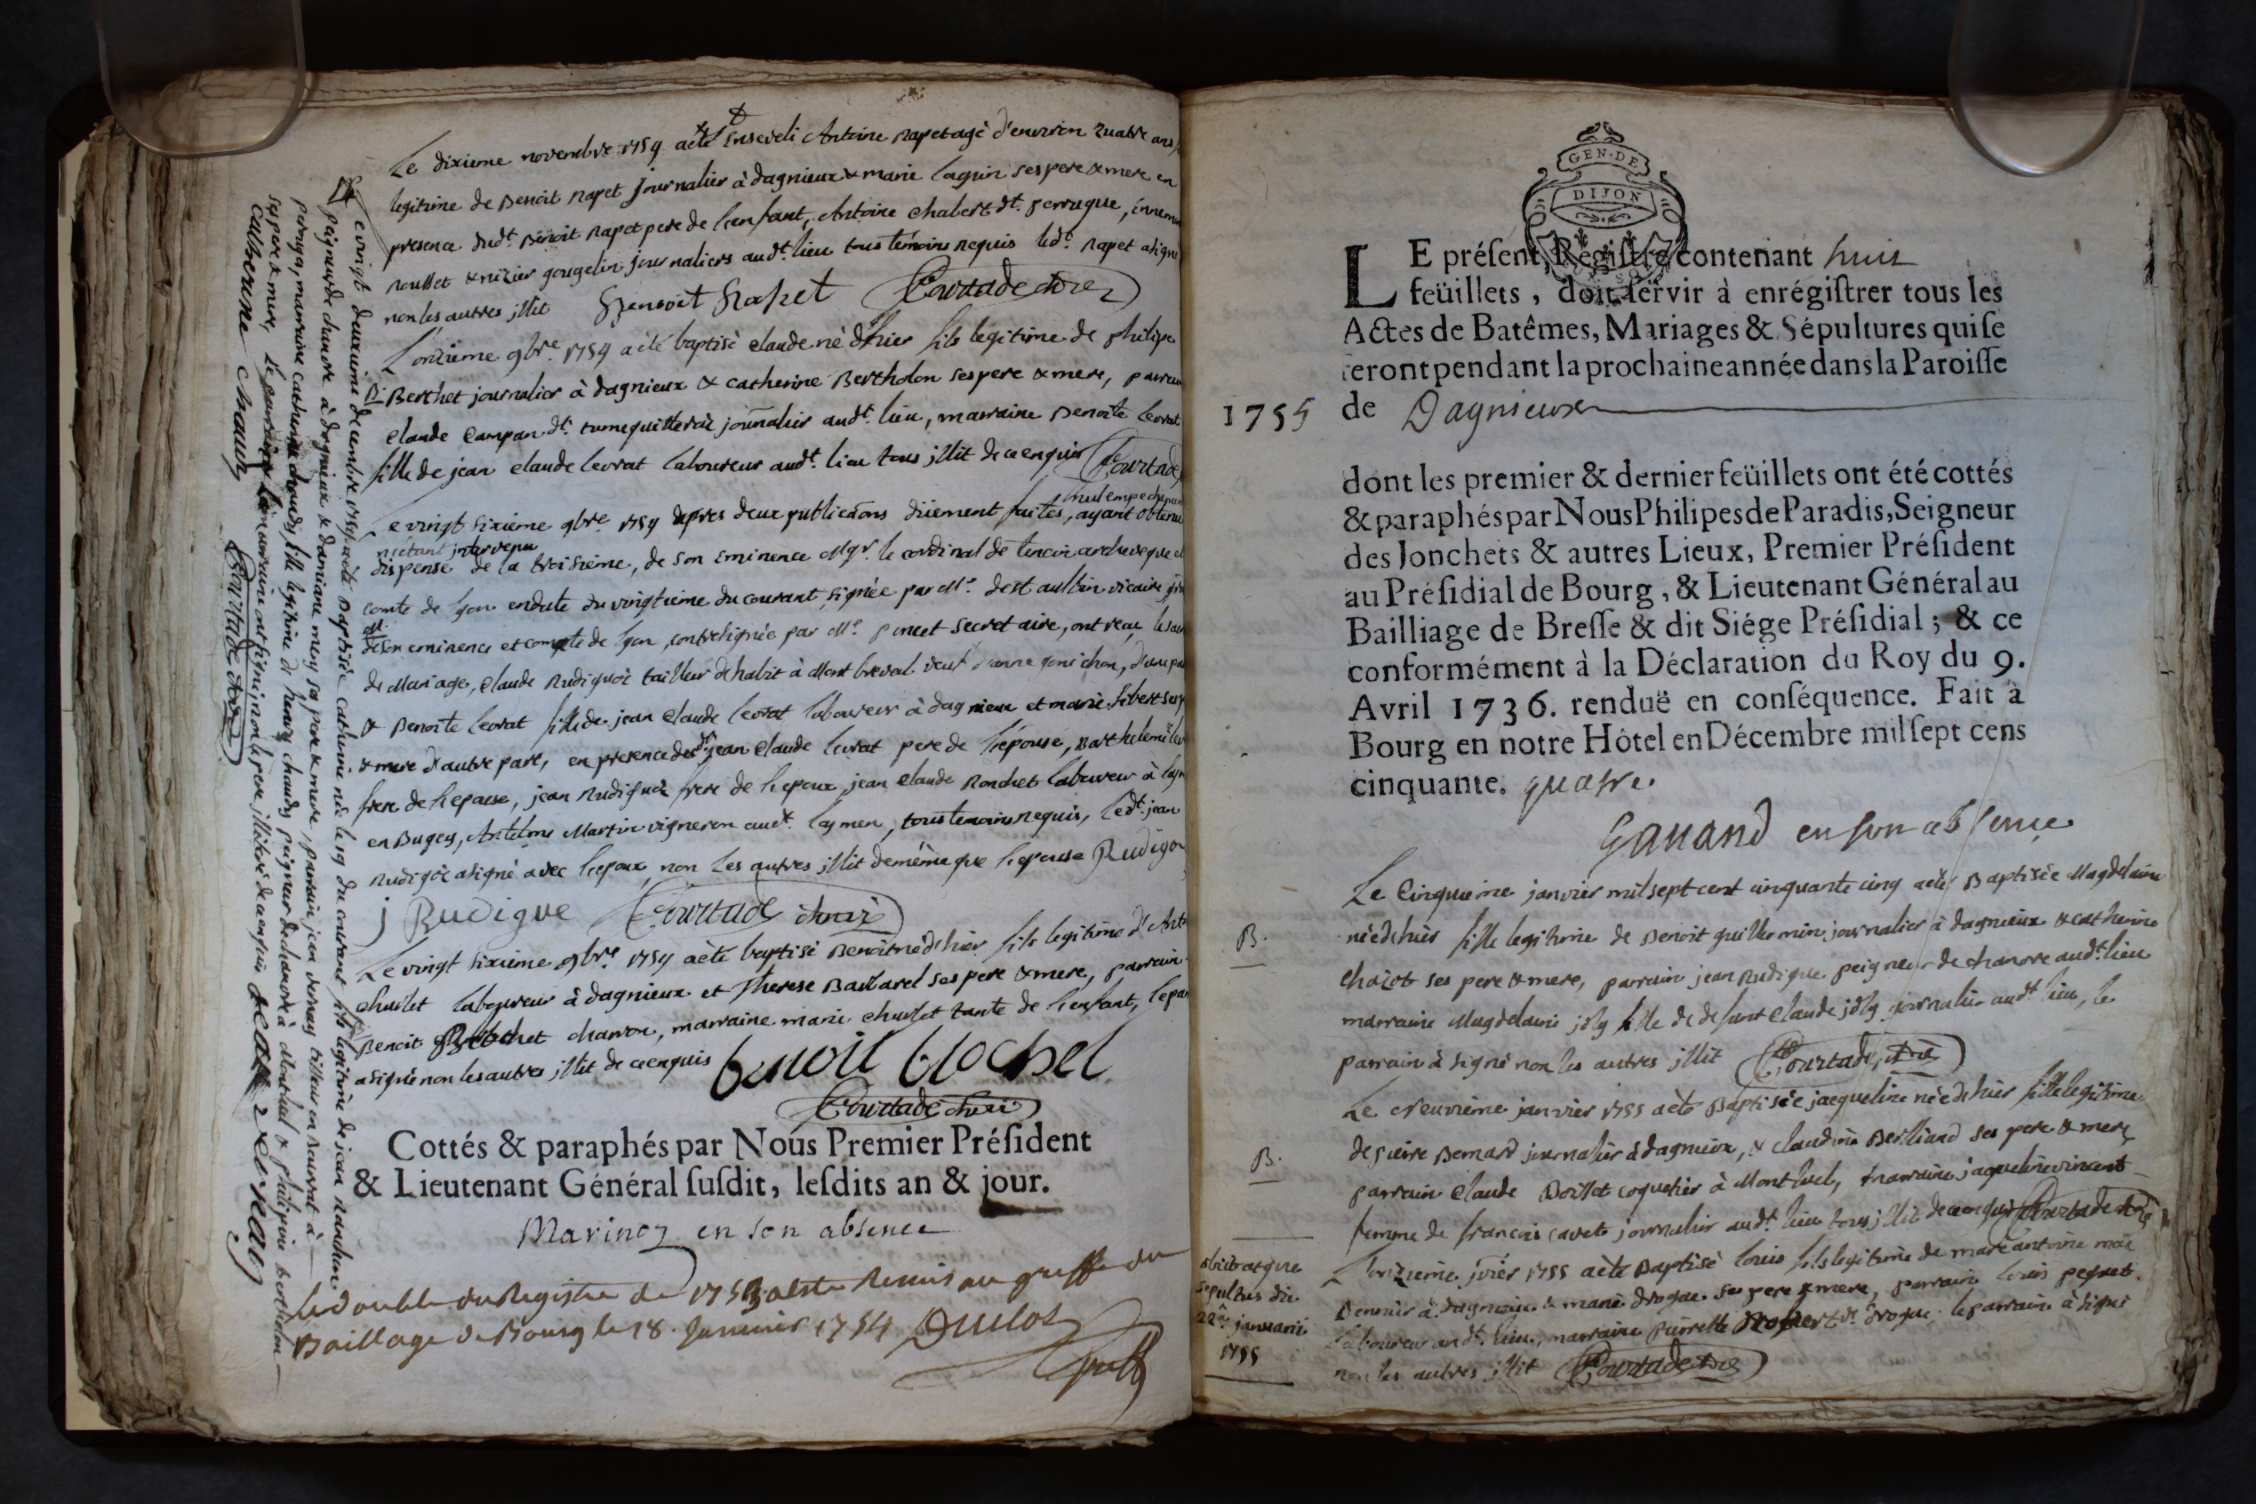 Le dixieme novembre 1754 a été Enseveli Antoine Rapet agé d'environ quatre ans
legitime de Benoit Rapet journalier à dagnieux & marie laguin ses pere & mere en
presence dudt. Benoit Rapet pere de lenfant, Antoine chabert dt. perruque,
Rousset & nizier gougelin journaliers audt. lieu tous témoins requis ledt. Rapet a signé
non les autres illit Benoit Rapet Courtade
L'onzieme 9bre. 1754 a été baptisé claude né d'hier fils legitime de philipe
B. Berthet journalier à dagnieux & catherine Bertholon ses pere & mere,
claude campan dt. journalier audt. lieu, marraine Benoite levrat
fille de jean claude levrat laboureur audt. lieu tous illit de ce enquis Courtade
Le vingt sixieme 9bre 1754 apres deux publicaõns düement faites, nul empechement
n'étant intervenu ayant obtenu
dispense de la troisieme, de son eminence Mgr. le cardinal de tencin archeveque
comte de lyon en date du vingtieme du courant, signée par Mr. de st aubin vicaire
de son eminence et compte de lyon, contresignée par Mr. poncet secretaire, ont recu
de Mariage, claude Rudigoz tailleur d'habit à Mont breval veuf d'anne
& Benoite levrat fille de jean claude levrat laboureur à dagnieux et marie
& mere d'autre part, en presence dudt. jean claude levrat pere de l'epouse, Barthelemi
frere de l'epouse, jean Rudigoz frere de l'epoux jean claude Ronchet laboureur à
en Bugey, Antelme Martin vigneron audt. tous temoins requis, ledt. jean
Rudigoz a signé avec l'epoux non les autres illit de même que l'epouse Rudigoz
j Rudigue Courtade
Le vingt sixieme 9bre. 1754 a été baptisé Benoit né d'hier fils legitime d'
laboureur à dagnieux et Therese Bavarel ses pere & mere, parrain
Benoit charron, marraine marie tante de l'enfant, le
a signé non les autres illit de ce enquis benoit blochet
Courtade
Cottés & paraphés par Nous Premier Préſident
& Lieutenant Général ſuſdit, leſdits an & jour.
Marinoz en son absence
Le double du Registre de 1753 a été Remis au greffe du
Baillage de Bourg le 18. Janvier 1754 Duclos
Le vingt deuxieme decembre 1754 a été Baptisée catherine née le 19 du courant fille legitime de jean
peigneur de chanvre à dagnieux & damiane mey ses pere & mere, parrain jean
marraine catherine chaudy fille legitime de henry chaudy peigneur de chanvre à Montluel & philipine bertholon
ses pere & mere, le parrain & la marraine ont signé non le pere illitéré de ce enquis
catherine chaudy
Courtade
GEN·DE
DIJON
LE préſent Regiſtre contenant huit
feüillets, doit ſervir à enrégiſtrer tous les
Actes de Batêmes, Mariages & Sépultures qui ſe
feront pendant la prochaine année dans la Paroiſſe
1755 de Dagnieux
dont les premier & dernier feüillets ont été cottés
& paraphés par Nous Philipes de Paradis, Seigneur
des Jonchets & autres Lieux, Premier Préſident
au Préſidial de Bourg, & Lieutenant Général au
Bailliage de Breſſe & dit Siége Préſidial; & ce
conformément à la Déclaration du Roy du 9.
Avril 1736. renduë en conſéquence. Fait à
Bourg en notre Hôtel en Décembre mil ſept cens
cinquante. quatre.
en son absence
Le Cinquieme janvier mil sept cent cinquante cinq a été Baptisée Magdelaine
B. née d'hier fille legitime de Benoit guillermin journalier à dagnieux & catherine
chazot ses pere & mere, parrain jean Rudigue peigneur de chanvre audt. lieu
marraine Magdelaine joly fille de defunt claude joly journalier audt lieu, le
parrain à signé non les autres illit Courtade
Le neuvieme janvier 1755 a été Baptisée jacqueline née d'hier fille legitime
B. de pierre Bernard journalier à dagnieux, & claudine Berliand ses pere & mere
parrain claude Boisset coquetier à Montluel, marraine jaqueline vincent
femme de francois cavet journalier audt. lieu tous illit de ce enquis Courtade
obiit atque
sepultus die
22a. januarii
1755
L'onzieme jvier 1755 a été Baptisé louis fils legitime de marc antoine
à dagnieux & marie drogue ses pere & mere, parrain louis peguet
laboureur audt. lieu, marraine pierrette dt. drogue, le parrain à signé
non les autres illit Courtade